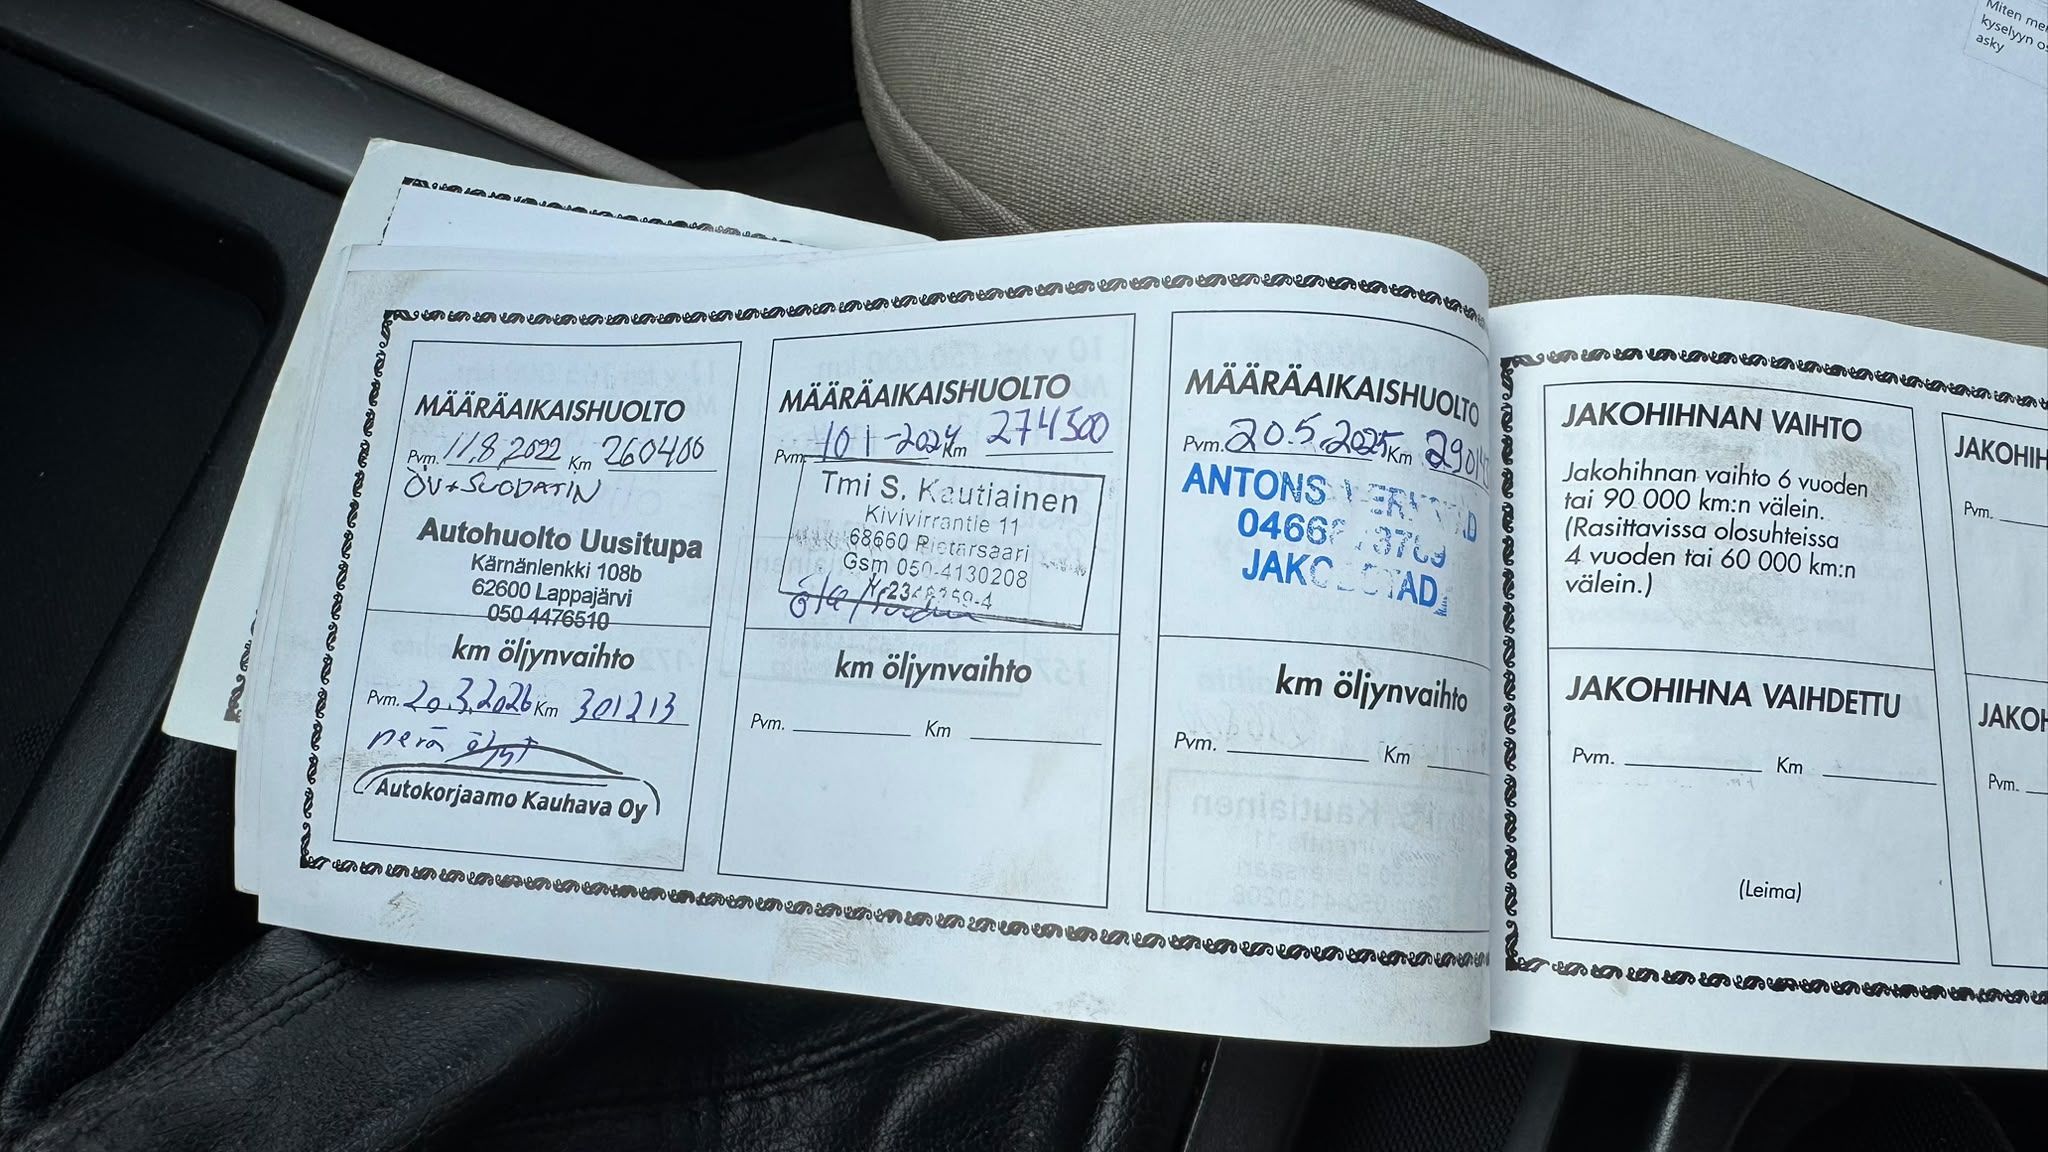 Miten
kyselyyn
asky
MÄÄRÄAIKAISHUOLTO
Pvm. 11.8.2022 Km 260400
ÖV+SUODATIN
Autohuolto Uusitupa
Kärnänlenkki 108b
62600 Lappajärvi
050 4476510
km öljynvaihto
Pvm. 20.3.2026 Km 301213
perä öljyt
Autokorjaamo Kauhava Oy
MÄÄRÄAIKAISHUOLTO
Pvm. 10 1 -2024 Km 274500
Tmi S. Kautiainen
Kivivirrantie 11
68660 Pietarsaari
Gsm 050-4130208
km öljynvaihto
Pvm. Km
MÄÄRÄAIKAISHUOLTO
Pvm. 20.5.2025 Km
ANTONS
km öljynvaihto
Pvm. Km
JAKOHIHNAN VAIHTO
Jakohihnan vaihto 6 vuoden
tai 90 000 km:n välein.
(Rasittavissa olosuhteissa
4 vuoden tai 60 000 km:n
välein.)
JAKOHIHNA VAIHDETTU
Pvm. Km
(Leima)
JAKOHIH
Pvm.
JAKOH
Pvm.